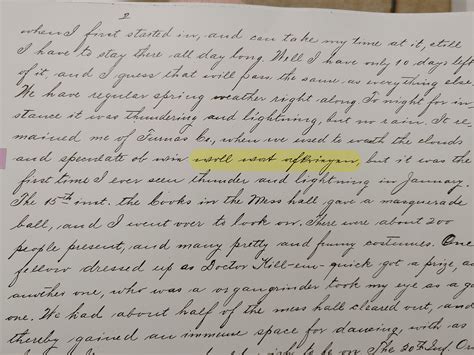 2
when I first started in, and can take my time at it, still
I have to stay there all day long. Well I have only 10 days left
of it, and I guess that will pass the same as everything else.
We have regular spring weather right along. To night for in-
stance it was thundering and lightning, but no rain. It re-
mained me of Co, when we used to watch the clouds
and speculate ob wia woll wat, but it was the
first time I ever seen thunder and lightning in January.
The 15th inst. the Cooks in the Mess hall gave a masquerade
ball, and I went over to look on. There were about 200
people present, and many pretty and funny costumes. One
fellow dressed up as Doctor Kill-em-quick got a prize, as
another one, who was a organgrinder took my eye as a go
one. We had about half of the mess hall cleared out, and
thereby gained an immense space for dancing, with as
The 20th Inf. Or